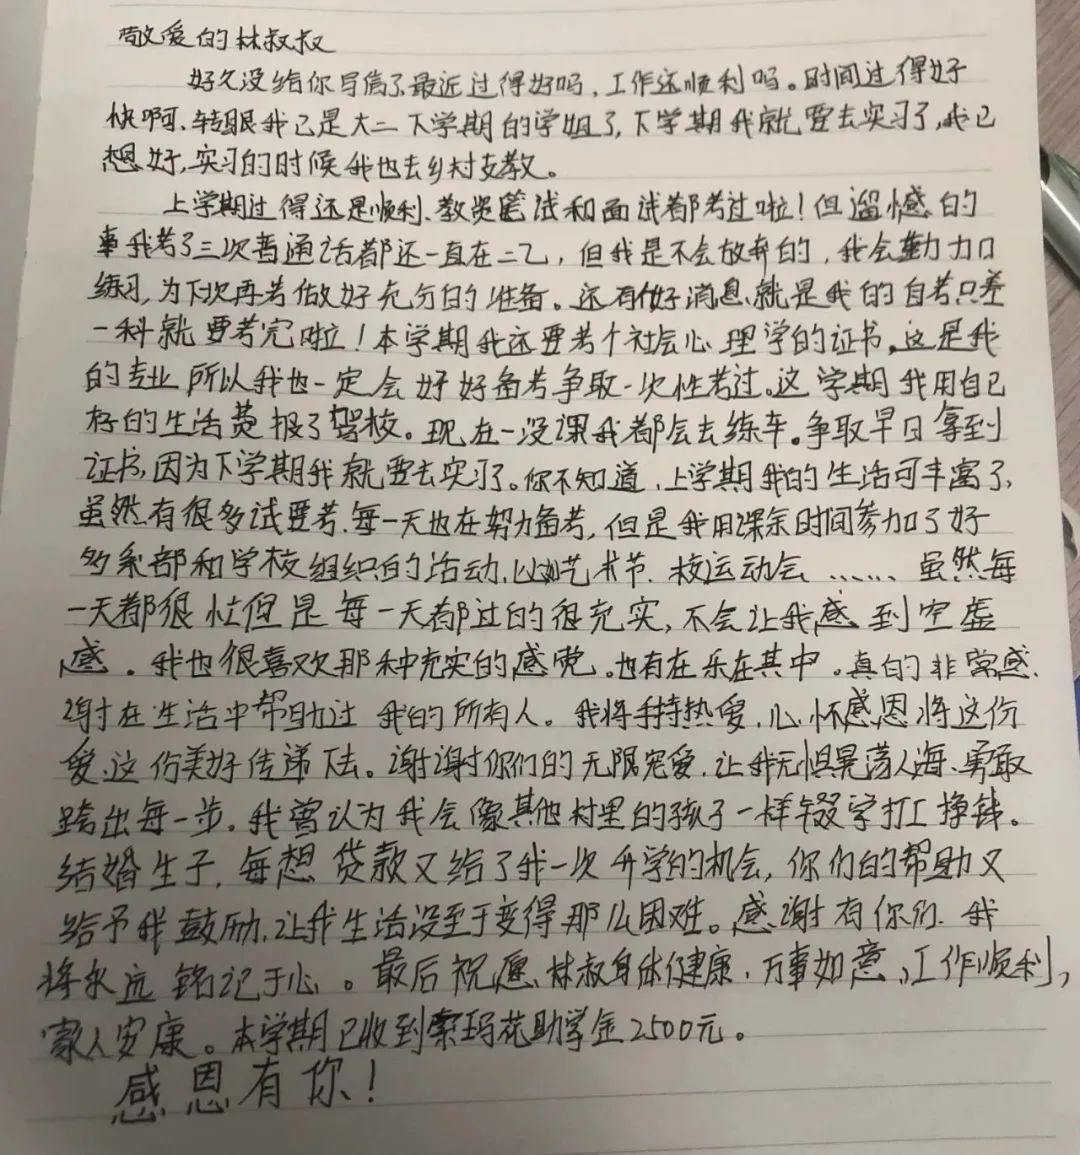 敬爱的林叔叔
好久没给你写信了,最近过得好吗,工作还顺利吗。时间过得好
快啊、转眼我已是大二下学期的学姐了,下学期我就要去实习了,我已
想好,实习的时候我也去乡村支教。
上学期过得还是顺利、教资笔试和面试都考过啦!但遛憾的
事我考了三次普通话都还一直在二乙,但我是不会放弃的,我会勤力口
练习,为下次再考做好充分的准备。还有做好消息、就是我的自考只差
一科就要考完啦!本学期我还要考个社会心理学的证书,这是我
的专业所以我也一定会好好备考争取一次性考过。这学期我用自己
存的生活费报了驾校。现在一没课我都会去练车。争取早日拿到
证书,因为下学期我就要去实习了。你不知道,上学期我的生活可丰富了,
虽然有很多试要考、每一天也在努力备考,但是我用课余时间参加了好
多系部和学校组织的活动,比如艺术节、校运动会……虽然每
一天都很忙但是每一天都过的很充实,不会让我感到空虚
感。我也很喜欢那种充实的感觉。也有在乐在其中。真的非常感
谢在生活中帮助过我的所有人。我将持热爱,心怀感恩将这份
爱、这份美好传递下去。谢谢你们的无限宠爱,让我无惧晃荡人海、勇敢
跨出每一步。我曾认为我会像其他村里的孩子一样辍学打工挣钱。
结婚生子,每想贷款又给了我一次升学的机会,你们的帮助又
给予我鼓励,让我生活没至于变得那么困难。感谢有你们、我
将永远铭记于心。最后祝愿、林叔身体健康、万事如意、工作顺利,
家人安康。本学期已收到索玛花助学金2500元。
感恩有你!